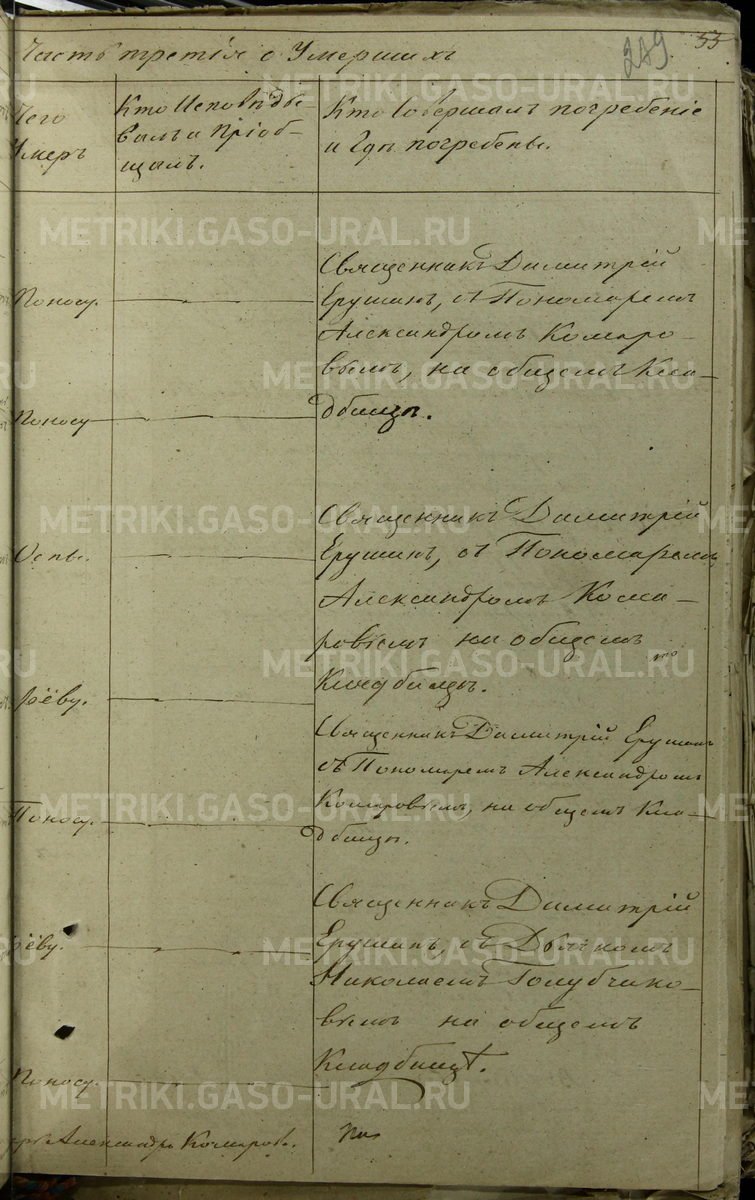 53
289.
Часть третія о Умершихъ
Чего
Умеръ
Кто Исповѣды-
валъ и Пріоб-
щалъ.
Кто Совершалъ погребеніе
и Гдѣ погребены.
Священникъ Димитрій
Поносу.
Ерушинъ, съ Пономаремъ
Александромъ Комаро-
вымъ, на общемъ Кла-
Поносу
дбищѣ.
Священникъ Димитрій
Оспы.
Ерушинъ, съ Пономаремъ
Александромъ Кома-
ровымъ на общемъ
Кладбищѣ.
рёву.
Священникъ Димитрій Ерушинъ
съ Пономаремъ Александромъ
Поносу.
Комаровымъ, на общемъ Кла-
дбищѣ.
Священникъ Димитрій
рёву.
Ерушинъ, съ Дьячкомъ
Николаемъ Голубчико-
вымъ на общемъ
Кладбищѣ.
Поносу.
Александръ Комаровъ.
METRIKI.GASO-URAL.RU